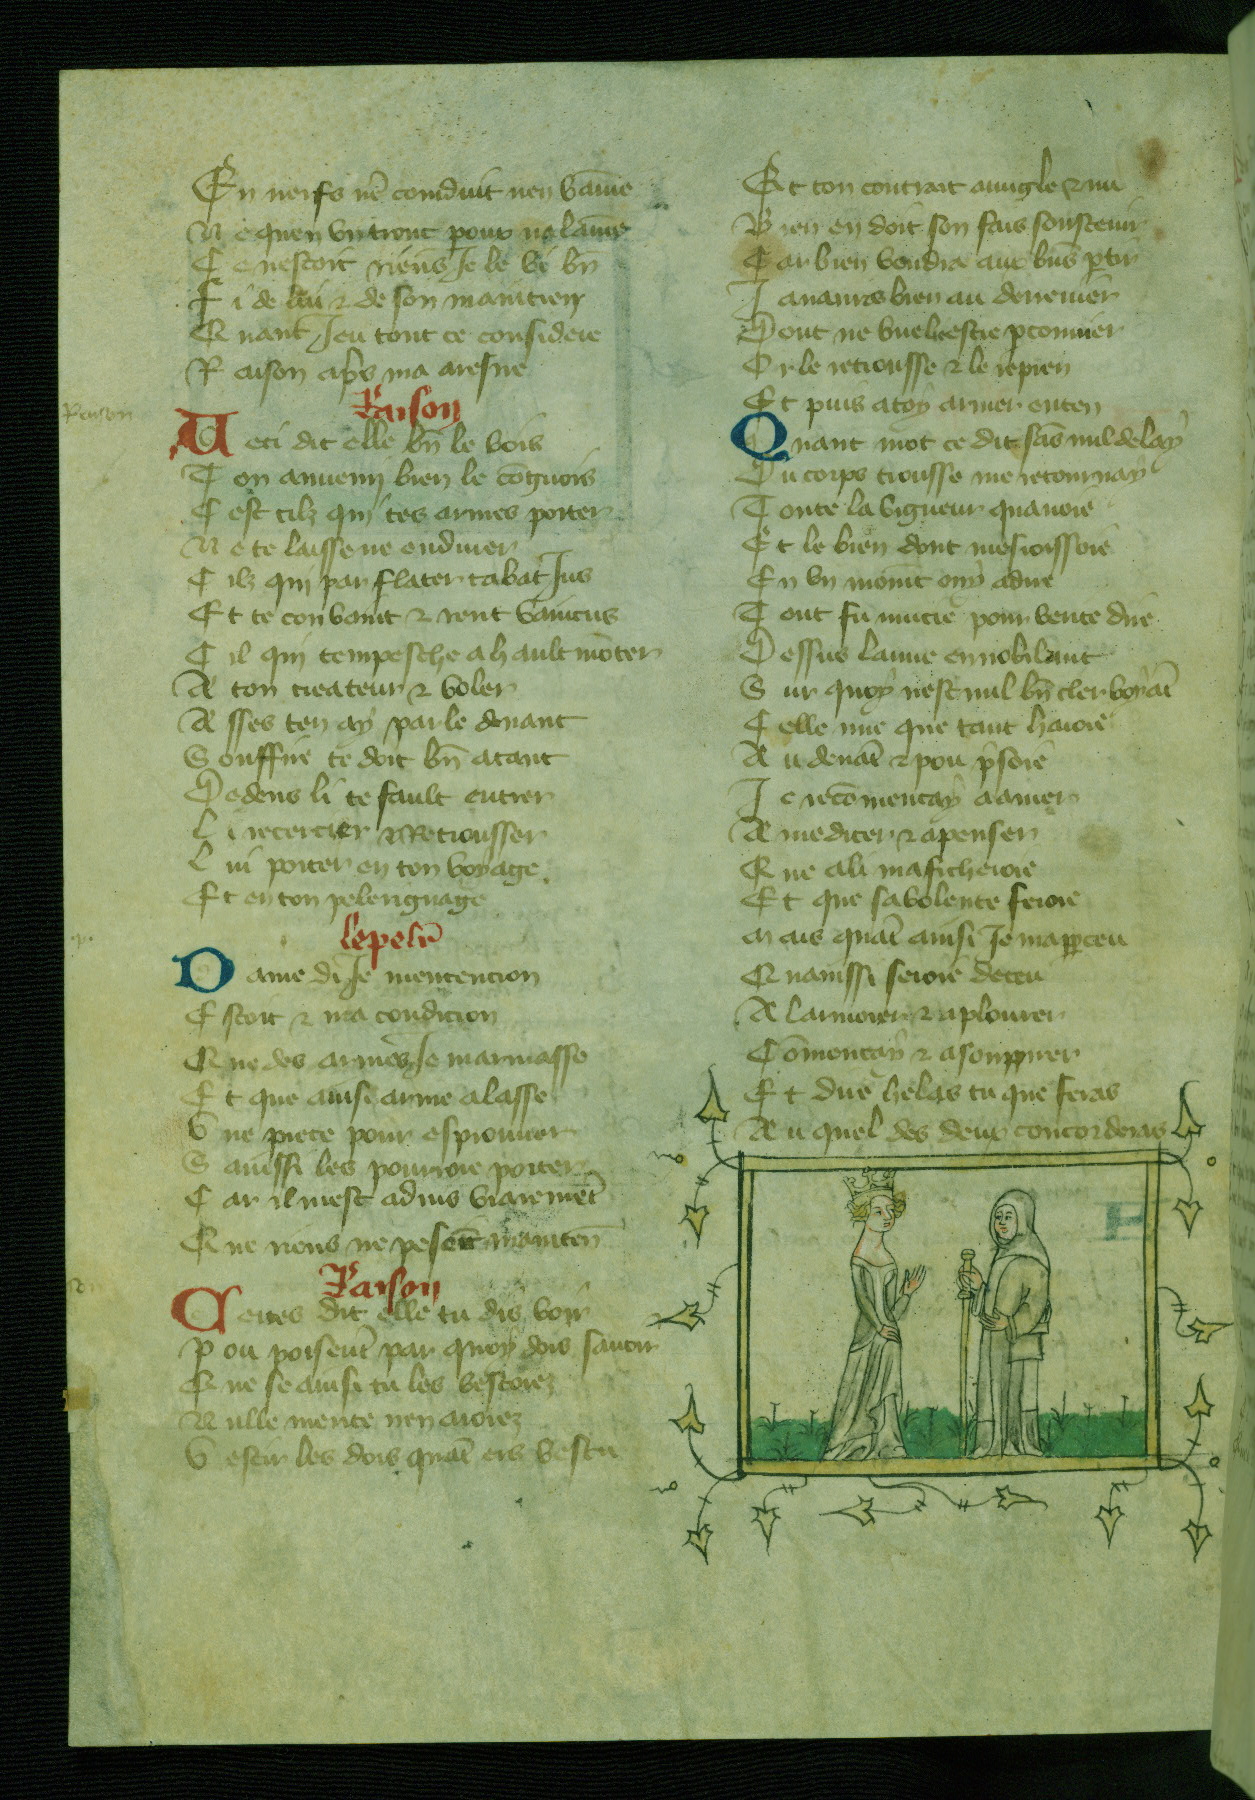 En nerfs në conduit nen vaine
Ne quen un tronc pour na lame
Ce nestoit riens Je le vi bñ
Et de lui & de son maintien
Quant Jeu tout ce considere
Raison aps ma aresne
Raison
Raison
Veci dit elle bñ le vois
Ton anuemi bien le cōgnois
Cest cilz qui tes armes porter
Ne te laisse ne endurer
Cilz qui par flater tabat Jus
Et te convaint & rent vaincus
Cil qui tempesche a hault mōter
A ton createur & voler
Asses ten ay parle devant
Souffire te doit bñ atant
Dedens li te fault entrer
Li recercier & Retrousser
Lui porter en ton voyage
Et en ton pelerignage
le pelī
Dame di Je mentencion
Estoit & ma condicion
Que des armes Je marmasse
Et que ainsi arme alasse
Une piece pour esprouver
Saussi les pourroie porter
Car il mest advis vraiemēt
Que riens ne pesent maintēn
Raison
Certes dit elle tu dis voir
Pou poisent par quoy dois savoir
Que se ainsi tu les vestoiez
Nulle merite nen aroiez
Vestir les dois quāt ers vestu
Et ton contrait avugle & nu
Bien en doit son fais soustenir
Car bien voudra aux biēs ptir
Javauras bien au derenier
Dont ne vuel estre pconnier
Or le retrousse & le repren
Et puis a toy armer enten
Quant mot ce dit sās nul delay
Du corps trousse me retournay
Toute la vigueur quavoie
Et le bien dont mesjoissoie
En un momēt ouy adire
Tout fu mucie pour verite dire
Dessus lamie ennobilant
Sur quoy nest nul bñ cler voyāt
Celle nue que tant haioie
Au devāt & pou psoie
Je recōmencay a amer
A mediter & a penser
Que a li maficheroie
Et que sa volente feroie
Mais quāt ainsi Je mapperceu
Quainssi seroie deceu
A larmoier & a plourer
Cōmencay & a souppirer
Et dire helas tu que feras
Au quel des deux tacorderas